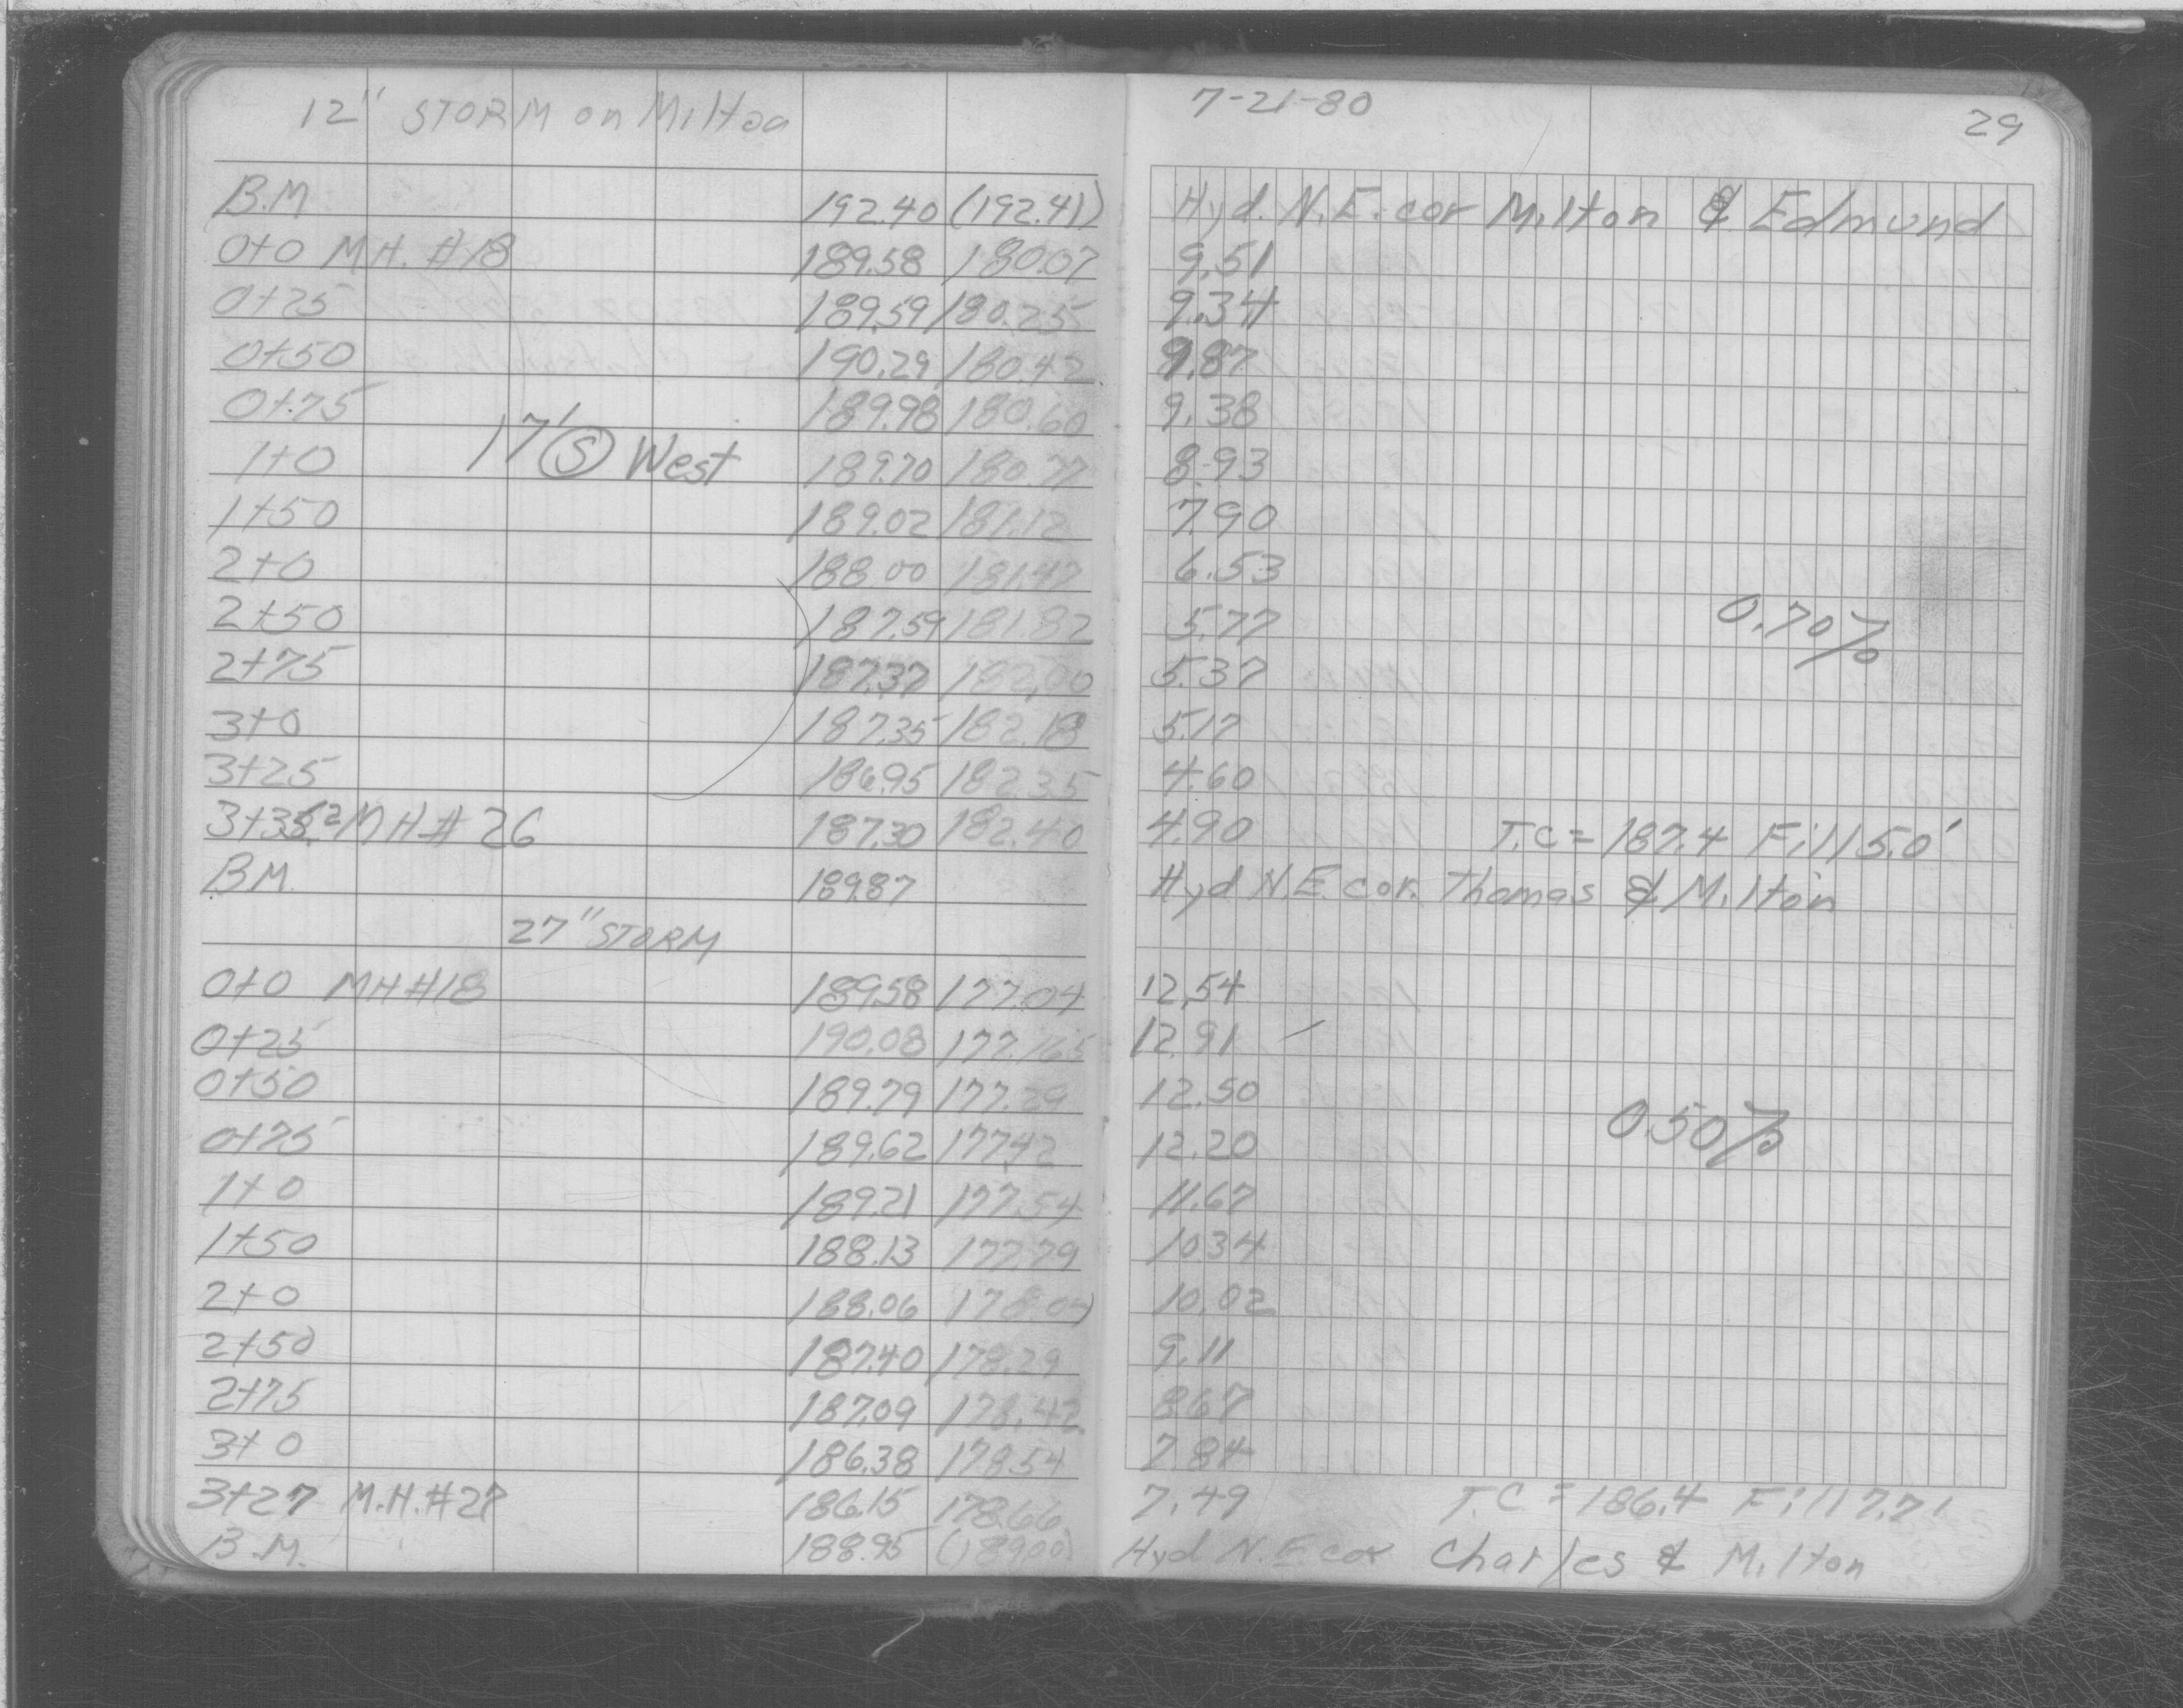 12" STORM on Milton 7-21-80 29
B.M 192.40 (192.41) Hyd. N.E. cor Milton & Edmund
0+0 M.H. #18 189.58 180.07 9.51
0+25 189.59 180.25 9.34
0+50 190.29 180.42 9.87
0+75 189.98 180.60 9.38
17' Ⓢ West
1+0 189.70 180.77 8.93
1+50 189.02 181.12 7.90
2+0 188.00 181.47 6.53
2+50 187.59 181.82 5.77 0.70%
2+75 187.37 182.00 5.37
3+0 187.35 182.18 5.17
3+25 186.95 182.35 4.60
MH# 26 187.30 182.40 4.90 T.C = 187.4 Fill 5.0'
B.M. 189.87 Hyd N.E. cor. Thomas & Milton
27" STORM
0+0 MH #18 189.58 177.04 12.54
0+25 190.08 177.165 12.91
0+50 189.79 177.29 12.50
0+75 189.62 177.42 12.20 0.50%
1+0 189.21 177.54 11.67
1+50 188.13 177.79 10.34
2+0 188.06 178.04 10.02
2+50 187.40 178.29 9.11
2+75 187.09 178.42 8.67
3+0 186.38 178.54 7.84
3+27 M.H. #27 186.15 178.66 7.49 T.C = 186.4 Fill 7.7'
B.M. 188.95 (189.00) Hyd N.E cor Charles & Milton